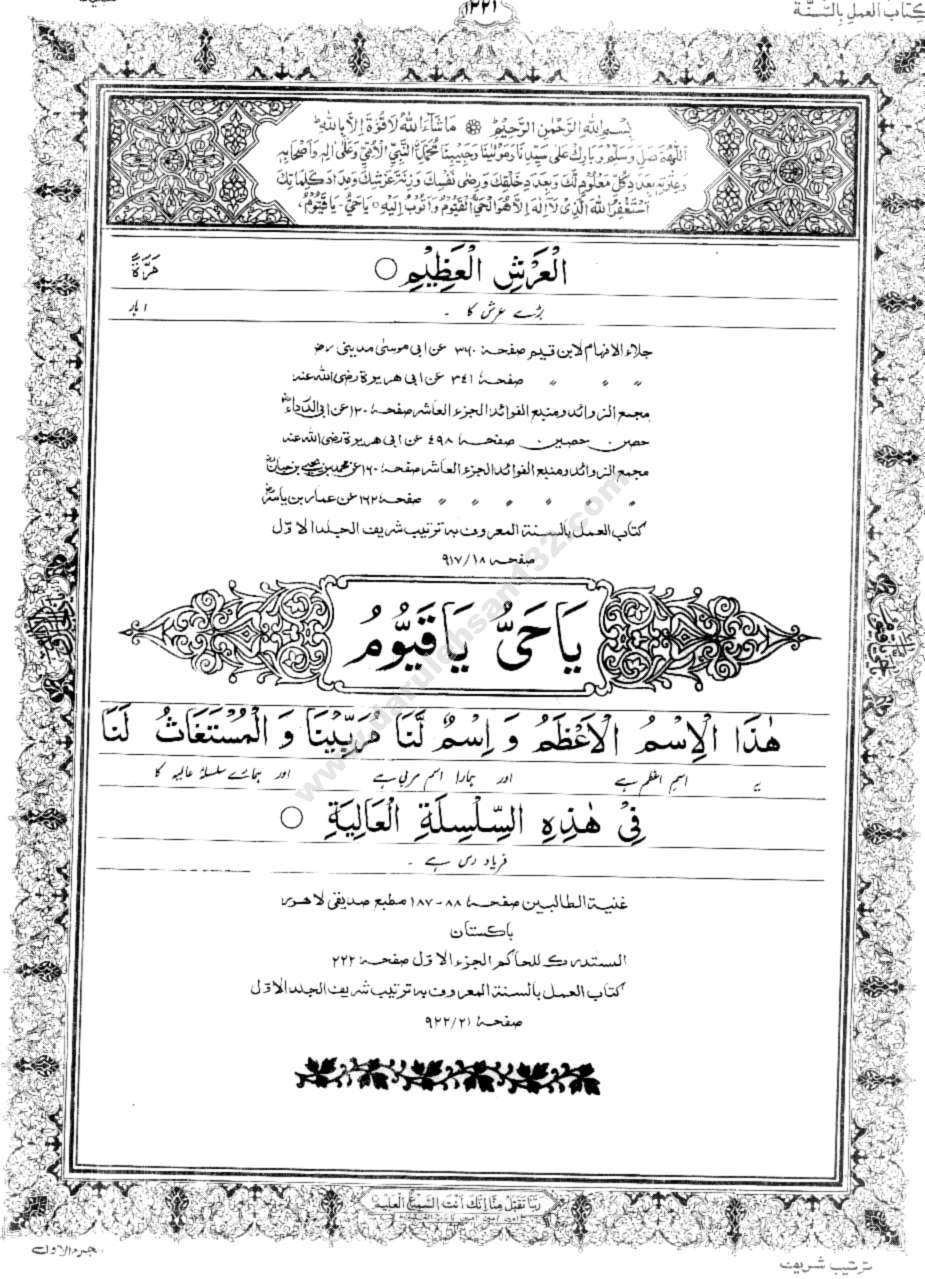 كتاب العمل بالسنة
١٢٢١
بِسْمِ اللهِ الرَّحْمٰنِ الرَّحِيْمِ مَا شَآءَ اللهُ لَا قُوَّةَ اِلَّا بِاللهِ
اَللّٰهُمَّ صَلِّ وَسَلِّمْ وَبَارِكْ عَلٰى سَيِّدِنَا وَمَوْلٰينَا وَحَبِيْبِنَا مُحَمَّدِنِ النَّبِيِّ الْاُمِّيِّ وَعَلٰى اٰلِهٖ وَاَصْحَابِهٖ
وَعِتْرَتِهٖ بِعَدَدِ كُلِّ مَعْلُوْمٍ لَّكَ وَبِعَدَدِ خَلْقِكَ وَرِضٰى نَفْسِكَ وَزِنَةَ عَرْشِكَ وَمِدَادَ كَلِمَاتِكَ
اَسْتَغْفِرُ اللهَ الَّذِيْ لَآ اِلٰهَ اِلَّا هُوَ الْحَيُّ الْقَيُّوْمُ وَاَتُوْبُ اِلَيْهِ يَا حَيُّ يَا قَيُّوْمُ
الْعَرْشِ الْعَظِيْمِ ○ مَرَّةً
بڑے عرش کا ۔ ۱ بار
جلاء الافہام لابن قیم صفحہ: ۳۶۰ عن ابی موسیٰ مدینی رض
〃 〃 〃 صفحہ: ۳۴۱ عن ابی ھریرة رضی اللہ عنہ
مجمع الزوائد ومنبع الفوائد الجزء العاشر صفحہ: ۱۲۰ عن ابی الدرداء رض
حصن حصین صفحہ: ۴۹۸ عن ابی ھریرة رضی اللہ عنہ
مجمع الزوائد ومنبع الفوائد الجزء العاشر صفحہ: ۱۶۰ عن محمد بن یحیی بن حبان
〃 〃 〃 〃 〃 〃 صفحہ: ۱۶۲ عن عمار بن یاسر رض
کتاب العمل بالسنة المعروف بہ ترتیب شریف الجلد الاوّل
صفحہ: ۹۱۷/۱۸
يَا حَيُّ يَا قَيُّوْمُ
هٰذَا الْاِسْمُ الْاَعْظَمُ وَ اِسْمٌ لَّنَا مُرَبِّيْنَا وَ الْمُسْتَغَاثُ لَنَا
یہ اسم اعظم ہے اور ہمارا اسم مربی ہے اور ہمارے سلسلۂ عالیہ کا
فِيْ هٰذِهِ السِّلْسِلَةِ الْعَالِيَةِ ○
فریاد رس ہے ۔
غنیة الطالبین صفحہ: ۸۸-۱۸۷ مطبع صدیقی لاھور
پاکستان
المستدرک للحاکم الجزء الاوّل صفحہ: ۲۲۲
کتاب العمل بالسنة المعروف بہ ترتیب شریف الجلد الاوّل
صفحہ: ۹۲۲/۲۱
رَبَّنَا تَقَبَّلْ مِنَّا اِنَّكَ اَنْتَ السَّمِيْعُ الْعَلِيْمُ
جزء الاول
ترتیب شریف
www.darulehsan132.com